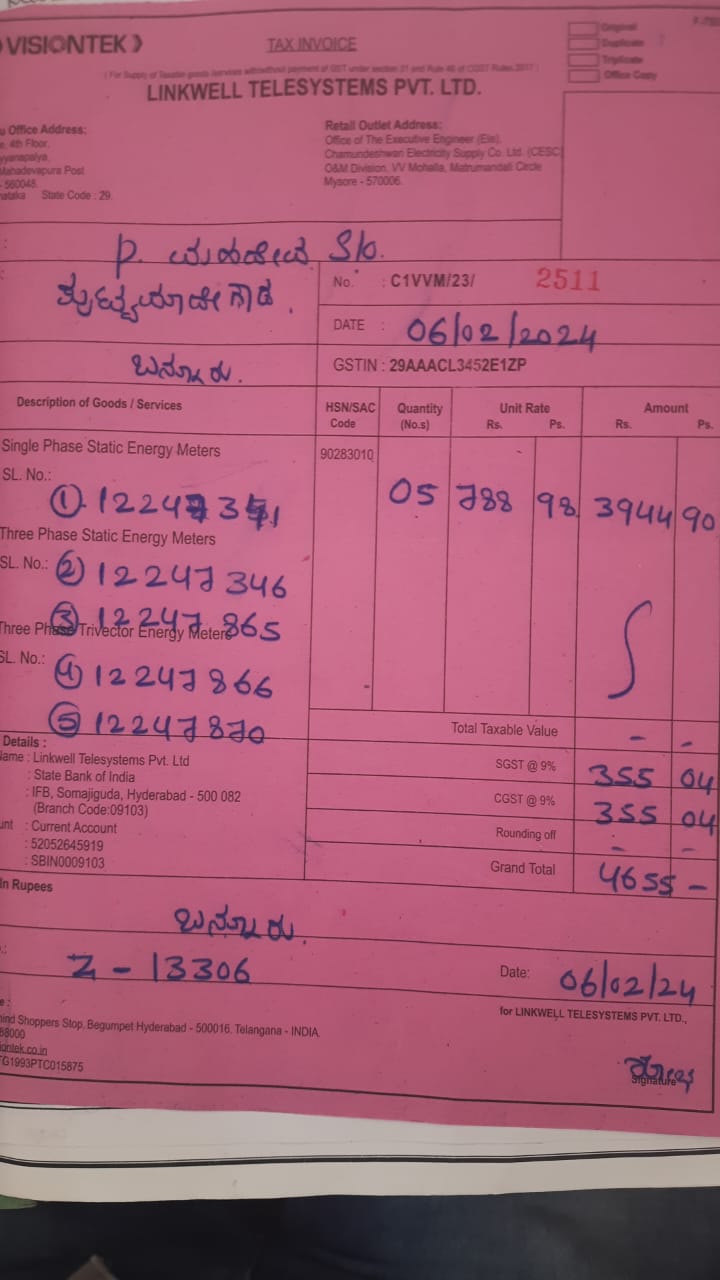 VISIONTEK
TAX INVOICE
Original
Duplicate
Triplicate
Office Copy
( For Supply of Taxable goods /services with/without payment of GST under section 31 and Rule 46 of CGST Rules 2017 )
LINKWELL TELESYSTEMS PVT. LTD.
Office Address:
4th Floor,
Mahadevapura Post
- 560048.
State Code : 29.
Retail Outlet Address:
Office of The Executive Engineer (Ele),
Chamundeshwari Electricity Supply Co. Ltd. (CESC)
O&M Division, VV Mohalla, Matrumandali Circle
Mysore - 570006.
P. ಮಹದೇವ S/o.
ಬನ್ನೂರು.
No. : C1VVM/23/ 2511
DATE : 06/02/2024
GSTIN : 29AAACL3452E1ZP
Description of Goods / Services HSN/SAC Code Quantity (No.s) Unit Rate Rs. Ps. Amount Rs. Ps.
Single Phase Static Energy Meters 90283010 05 788 98 3944 90
SL. No.:
① 12247351
Three Phase Static Energy Meters
SL. No.: ② 12247346
③ 12247865
Three Phase Trivector Energy Meters
SL. No.: ④ 12247866
⑤ 12247870
Total Taxable Value - -
SGST @ 9% 355 04
CGST @ 9% 355 04
Rounding off - -
Grand Total 4655 -
Details :
Name : Linkwell Telesystems Pvt. Ltd
: State Bank of India
: IFB, Somajiguda, Hyderabad - 500 082
(Branch Code:09103)
: Current Account
: 52052645919
: SBIN0009103
In Rupees
ಬನ್ನೂರು.
Z - 13306
Date: 06/02/24
for LINKWELL TELESYSTEMS PVT. LTD.,
Shoppers Stop, Begumpet Hyderabad - 500016. Telangana - INDIA.
Signature